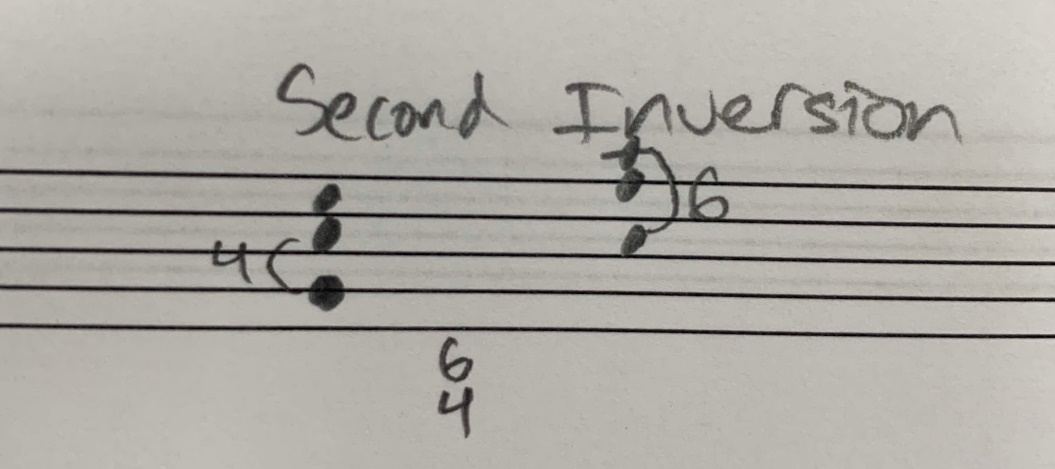 Second Inversion
4
6
6
4